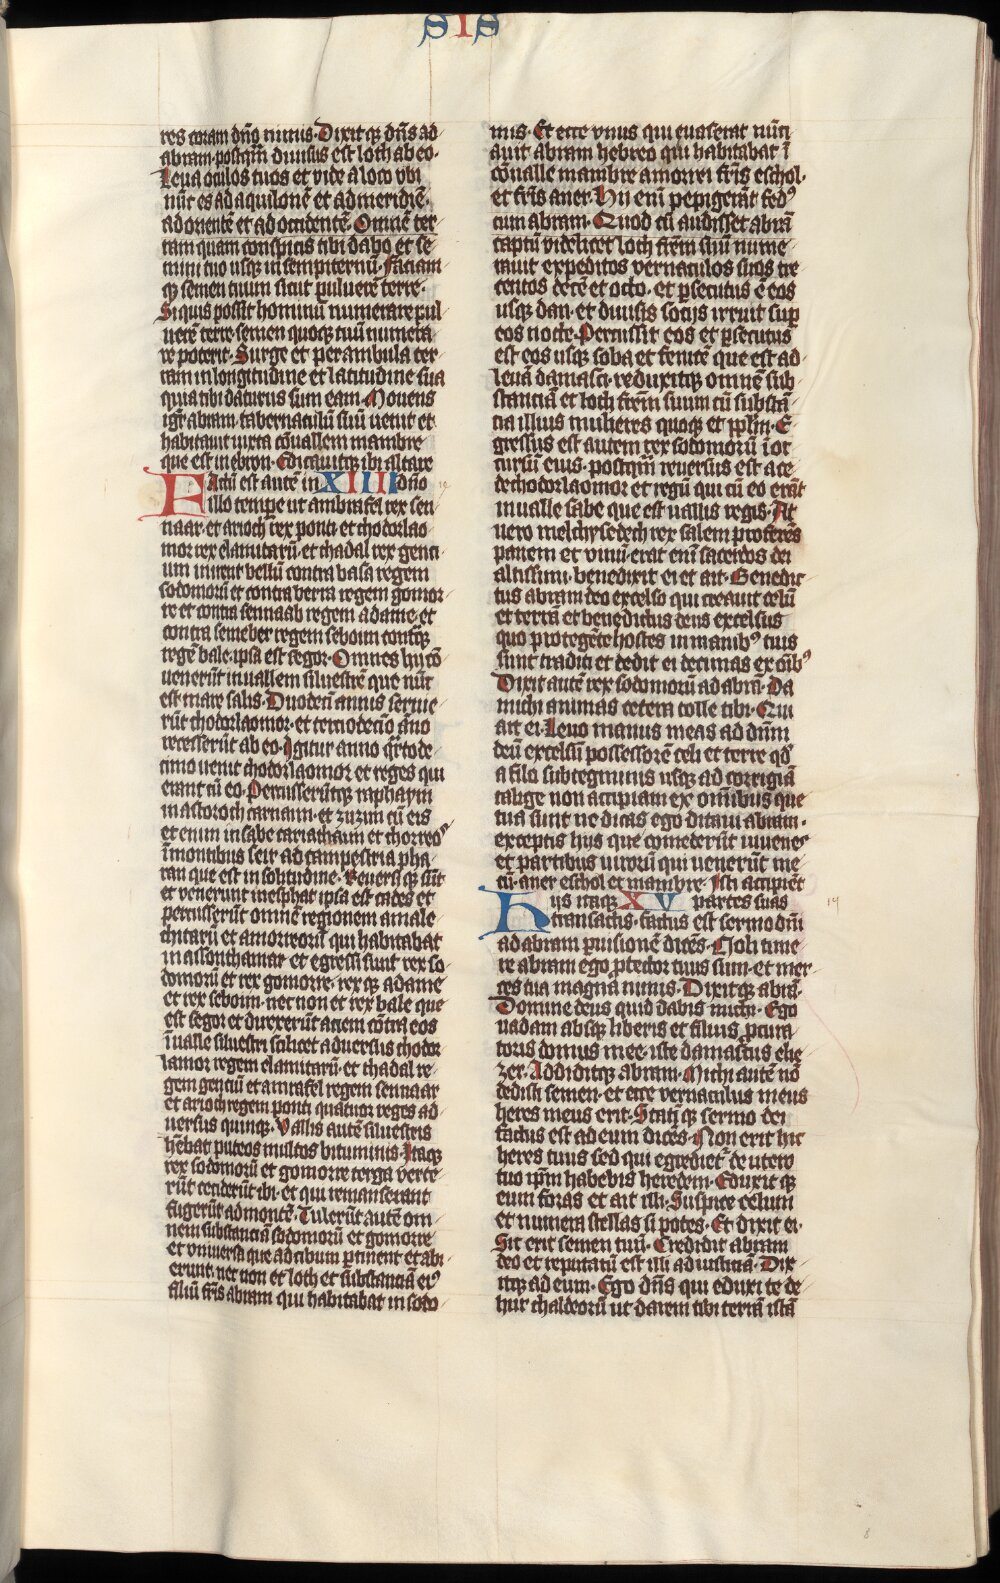 SIS
res coram dño nimis. Dixitqꝫ dñs ad
abram postqm̃ diuisus est loth ab eo.
Leua oculos tuos et vide a loco vbi
nũc es ad aquilonẽ et ad meridiẽ.
ad orientẽ et ad occidentẽ. Omnẽ ter
ram quam conspicis tibi dabo et se
mini tuo usqꝫ in sempiternũ. faciam
qꝫ semen tuum sicut puluerẽ terre.
Si quis possit hominũ numerare pul
uerẽ terre. semen quoqꝫ tuũ numera
re poterit. Surge et perambula ter
ram in longitudine et latitudine sua
quia tibi daturus sum eam. Mouens
igr̃ abram tabernaculũ suũ uenit et
habitauit iuxta cõuallem mambre
que est in ebron. Edicauitqꝫ ibi altare
Factũ est autẽ in XIIII dño
illo tempe ut ambrafel rex sen
naar. et arioch rex ponti et chodorlao
mor rex elamitarũ. et thadal rex genti
um inirent bellũ contra basa regem
sodomorũ et contra berra regem gomor
re et contra sennaab regem adame. et
contra semeber regem seboim contraqꝫ
regẽ bale. ipsa est segor. Omnes hij cõ
uenerũt in uallem siluestrẽ que nũc
est mare salis. Duodecĩ annis seruie
rũt chodorlaomor. et terciodecĩo ãno
recesserũt ab eo. Igitur anno qr̃tode
cimo uenit chodorlaomor et reges qui
erant cũ eo. Percusserũtqꝫ raphaym
in astoroth carnaim. et zuzim cũ eis
et enim in sabe cariathaim et chorreoꝰ
ĩ montibus seir ad campestria pha
ran que est in solitudine. Reuersiqꝫ sũt
et venerunt in esphat ipsa est cades et
percusserũt omnẽ regionem amale
chitarũ et amorreorũ qui habitabat
in assonthamar. et egressi sunt rex so
domorũ et rex gomorre. rexqꝫ adame
et rex seboim. nec non et rex bale que
est segor et direxerũt aciem cõtra eos
ĩ ualle siluestri scilicet aduersus chodor
lamor regem elamitarũ. et thadal re
gem genciũ et amrafel regem sennaar
et arioch regem ponti. quatuor reges ad
uersus quinqꝫ. Vallis autẽ siluestris
hẽbat puteos multos bituminis. Itaqꝫ
rex sodomorũ et gomorre terga verte
rũt cecideritqꝫ ibi. et qui remanserant
fugerũt ad montẽ. Tulerũt autẽ om
nem substanciã sodomorũ et gomorre
et vniuersa que ad cibum ptinent et abi
erunt. nec non et loth et substanciã eiꝰ
filiũ fr̃is abram qui habitabat in sodo
mis. Et ecce vnus qui euaserat nũci
auit abram hebreo qui habitabat ĩ
cõualle mambre amorrei fr̃is eschol.
et fr̃is aner. Hij enĩ pepigerãt fedꝰ
cum abram. Quod cũ audisset abrã
captũ videlicet loth fr̃em suũ nume
rauit expeditos vernaculos suos tre
centos decẽ et octo. et psecutus ẽ eos
usqꝫ dan. et diuisis socijs irruit sup
eos nocte. Percussit eos et psecutus
est eos usqꝫ soba et fenicẽ que est ad
leuã damasci. reduxitqꝫ omnẽ sub
stanciã et loth fr̃em suum cũ substã
cia illius mulieres quoqꝫ et pplm̃. E
gressus est autem rex sodomorũ ĩ oc
cursũ eius. postqm̃ reuersus est a ce
de chodorlaomor et regũ qui cũ eo erãt
in ualle sabe que est uallis regis. At
uero melchysedech rex salem proferẽs
panem et vinũ. erat enĩ sacerdos dei
altissimi. benedixit ei et ait. Benedic
tus abram deo excelso qui creauit celũ
et terrã et benedictus deus excelsus
quo protegẽte hostes in manibꝰ tuis
sunt traditi et dedit ei decimas ex oĩbꝰ
Dixit autẽ rex sodomorũ ad abrã. Da
michi animas cetera tolle tibi. Qui
ait ei. Leuo manus meas ad dñm
deũ excelsũ possessorẽ celi et terre qd
a filo subtegminis usqꝫ ad corrigiã
calige non accipiam ex omĩbus que
tua sunt ne dicas ego ditaui abram.
exceptis hijs que comederũt iuuenes
et partibus virorũ qui uenerũt me
cũ. aner eschol et mambre. Isti accipiẽt
Hijs itaqꝫ XV partes suas
transactis. factus est sermo dñi
ad abram p uisionẽ dicẽs. Noli time
re abram ego ptector tuus sum. et mer
ces tua magna nimis. Dixitqꝫ abrã.
Domine deus quid dabis michi. Ego
uadam absqꝫ liberis et filius pcura
toris domus mee. iste damascus elie
zer. Addiditqꝫ abram. Michi autẽ nõ
dedisti semen. et ecce vernaculus meus
heres meus erit. Statĩqꝫ sermo dei
factus est ad eum dicẽs. Non erit hic
heres tuus sed qui egrediet̃ de utero
tuo ipm̃ habebis heredem. Eduxitqꝫ
eum foras et ait illi. Suspice celum
et numera stellas si potes. Et dixit ei.
Sic erit semen tuũ. Credidit abram
deo et reputatũ est illi ad iusticiã. Dix
itqꝫ ad eum. Ego dñs qui eduxi te de
hur chaldeorũ ut darem tibi terrã istã